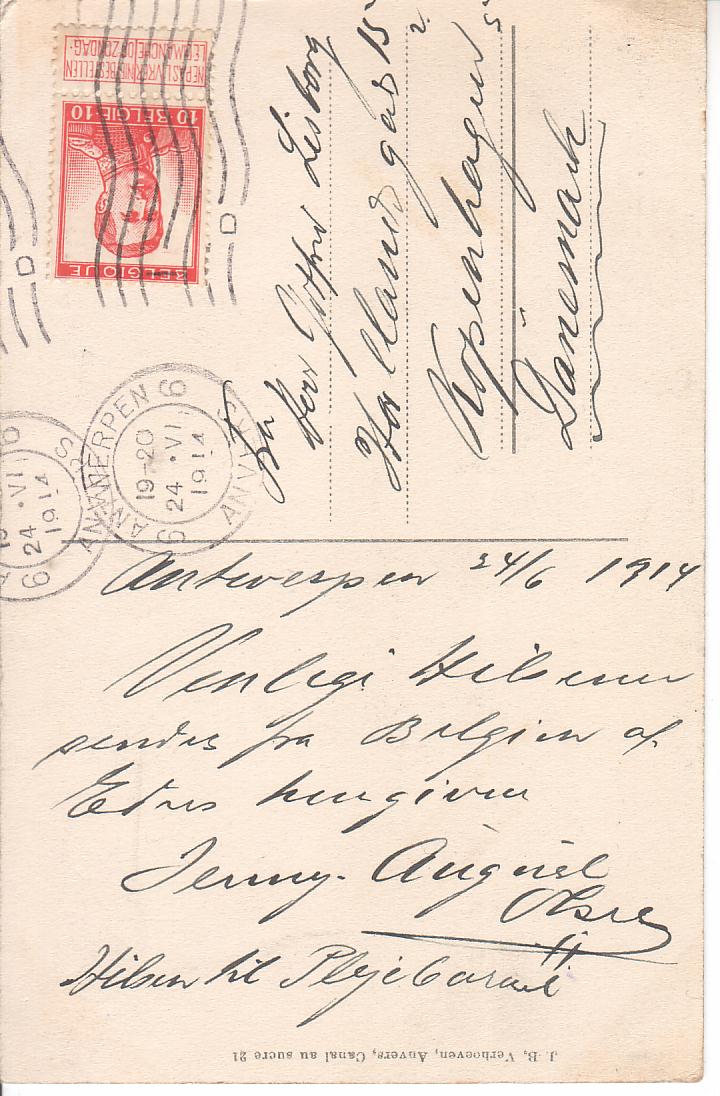 NE PAS LIVRER LE DIMANCHE
NIET BESTELLEN OP ZONDAG.
10 BELGIE 10
BELGIQUE
D
D
ANTWERPEN 6
19-20
24 · VI
1914
6 ANVERS
24 · VI
1914
6
Herr Lisborg
Hollandsgad 15
2. S
Kopenhagen
Dänemark
Antwerpen 24/6 1914
Venlige Hilsener
sendes fra Belgien af
Eders hengivne
Jenny. August
Olsen
Hilsen til Plejebarnet
J. B. Verhoeven, Anvers, Canal au sucre 21